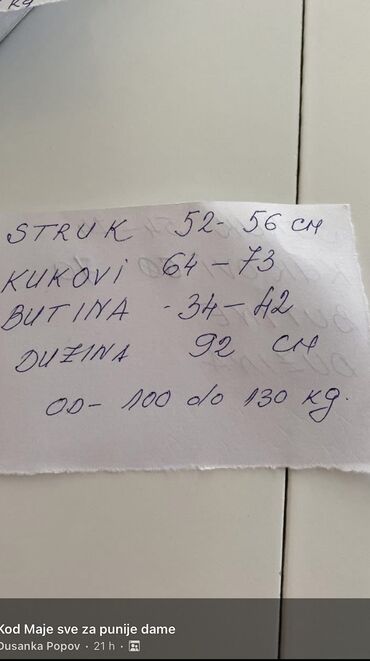 STRUK 52-56 см
KUKOVI 64-73
BUTINA -34-42
DUZINA 92 см
OD- 100 do 130 kg.
Kod Maje sve za punije dame
Dusanka Popov · 21 h ·